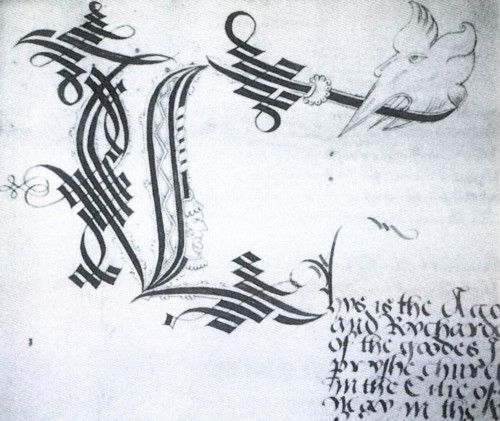 Thys is the Acco
and Rychard
of the goodes
pryshe church
in the Cite of
in the